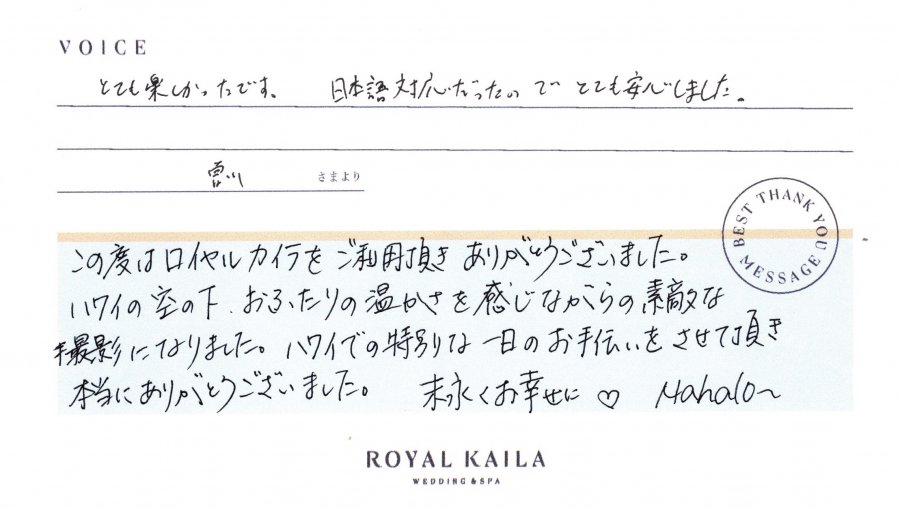 VOICE
とても楽しかったです。 日本語対応だったので とても安心しました。
宮川 さまより
BEST THANK YOU MESSAGE
この度はロイヤルカイラをご利用頂き ありがとうございました。
ハワイの空の下、おふたりの温かさを感じながらの素敵な
撮影になりました。ハワイでの特別な一日のお手伝いをさせて頂き
本当にありがとうございました。 末永くお幸せに♡ Mahalo~
ROYAL KAILA
WEDDING & SPA